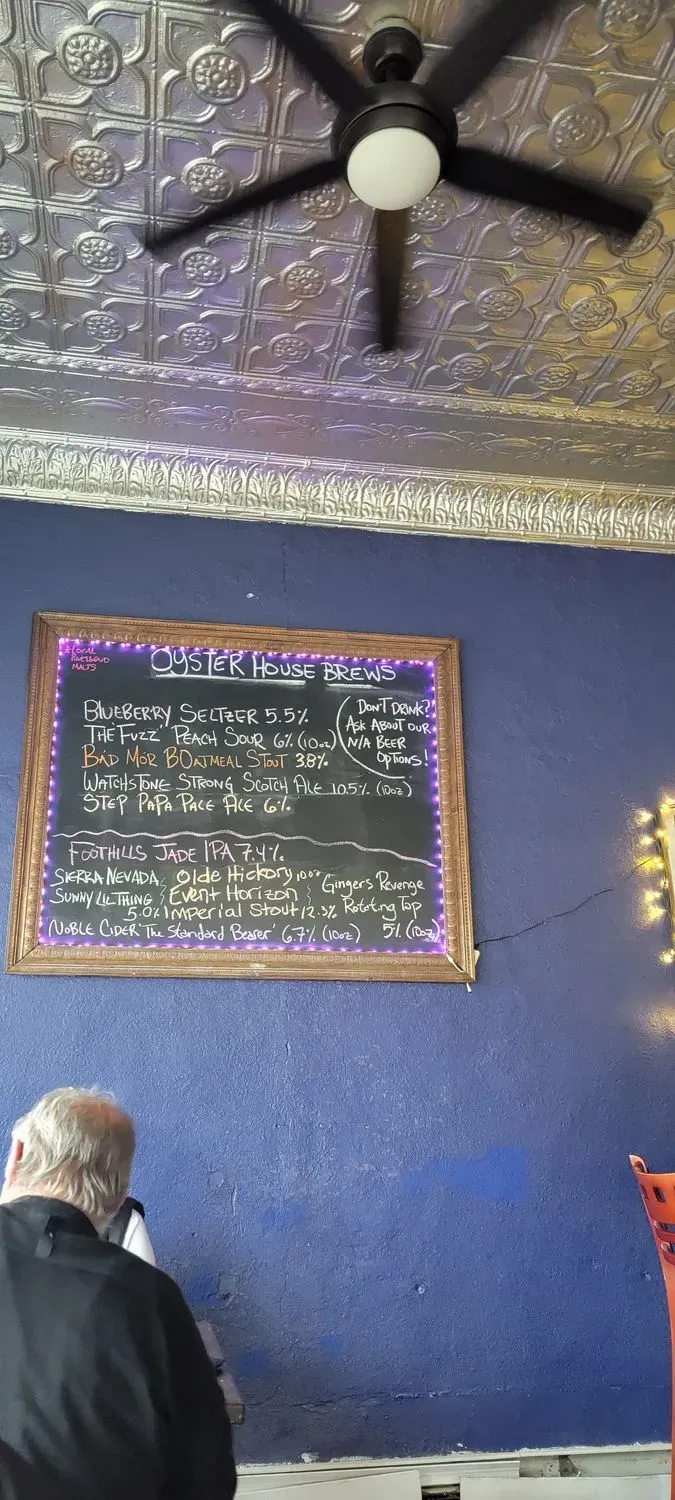 *LOCAL
RIVERBEND
MALTS
OYSTER HOUSE BREWS
BLUEBERRY SELTZER 5.5%
'THE FUZZ' PEACH SOUR 6% (10oz)
BÁD MÓR BOATMEAL STOUT 3.8%
WATCHSTONE STRONG SCOTCH ALE 10.5% (10oz)
STEP PAPA PALE ALE 6%
DON'T DRINK?
ASK ABOUT OUR
N/A BEER
OPTIONS!
FOOTHILLS JADE IPA 7.4%
SIERRA NEVADA
SUNNY LIL THING
5.0%
Olde Hickory 10oz
Event Horizon
Imperial Stout 12.3%
Gingers Revenge
Rotating Tap
5% (10oz)
NOBLE CIDER 'The Standard Bearer' 6.7% (10oz)